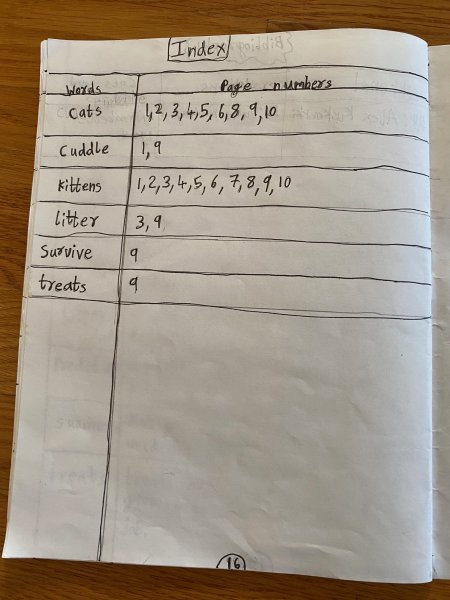 Index
Words Page numbers
Cats 1,2,3,4,5,6,8,9,10
Cuddle 1,9
Kittens 1,2,3,4,5,6,7,8,9,10
litter 3,9
Survive 9
treats 9
16